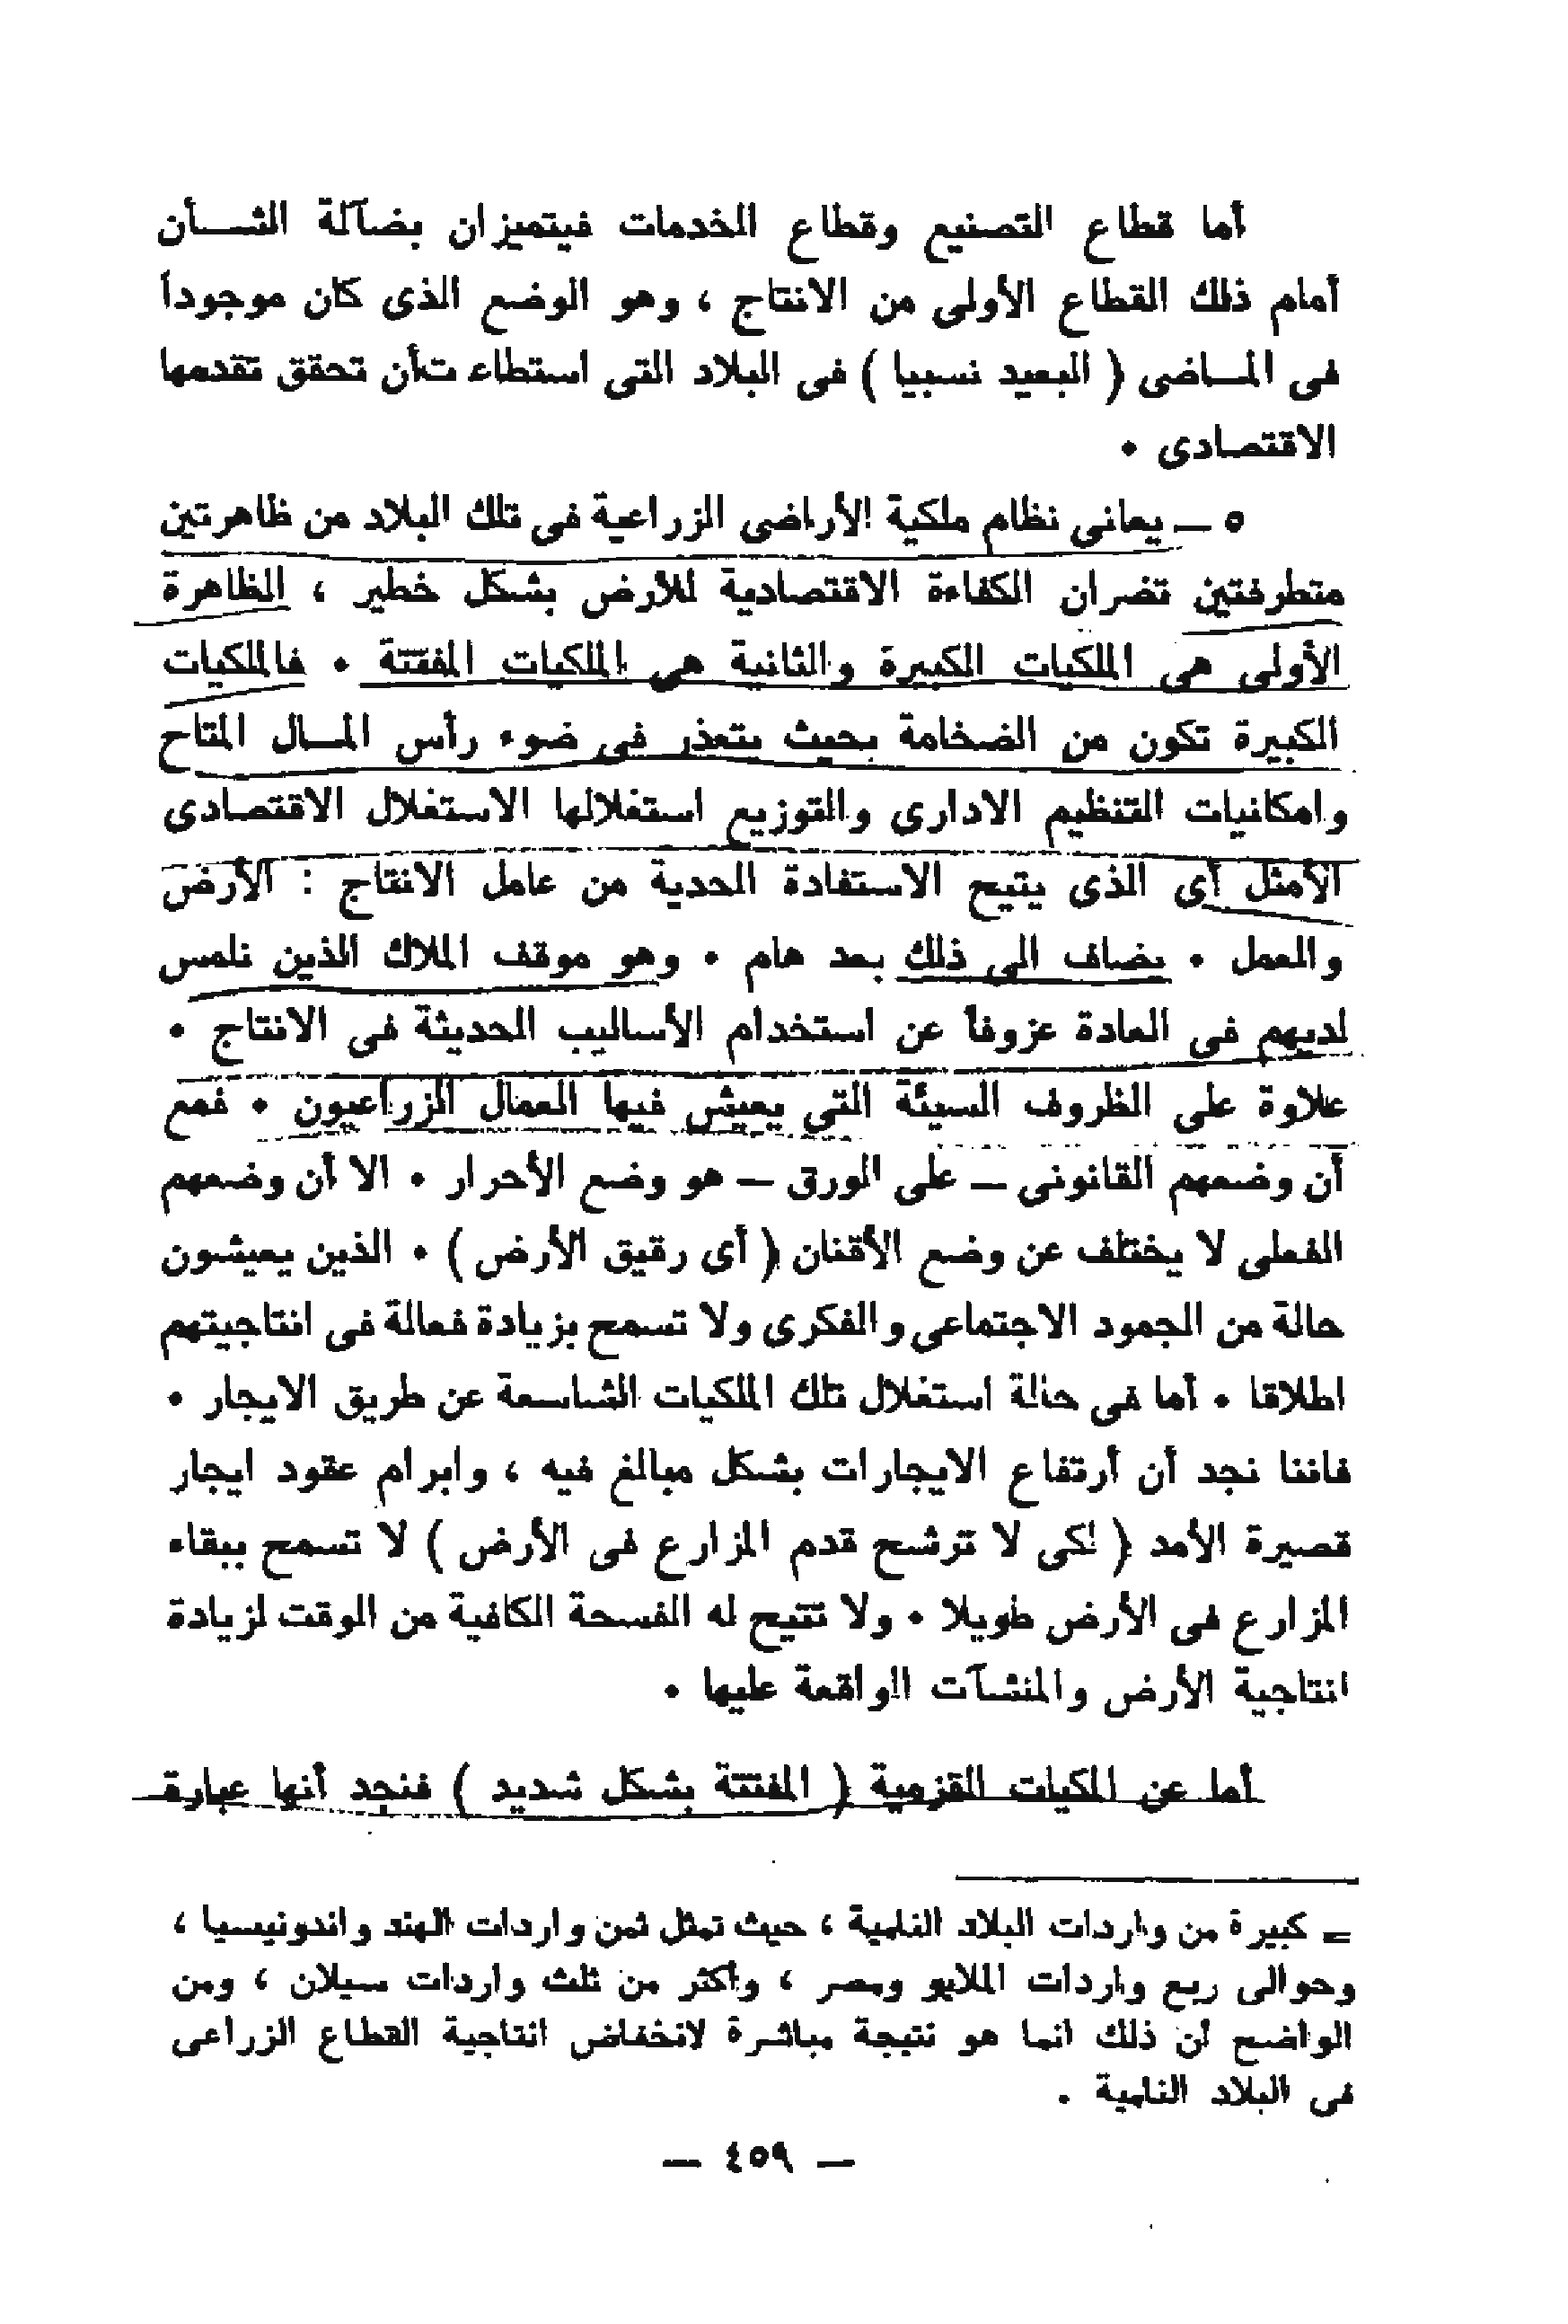 أما قطاع التصنيع وقطاع الخدمات فيتميزان بضآلة الشـــأن
أمام ذلك القطاع الأولى من الانتاج ، وهو الوضع الذى كان موجوداً
فى المــاضى ( البعيد نسبيا ) فى البلاد التى استطاء تأن تحقق تقدمها
الاقتصادى ٠
٥ ــ يعانى نظام ملكية الأراضى الزراعية فى تلك البلاد من ظاهرتين
متطرفتين تضران الكفاءة الاقتصادية للأرض بشكل خطير ، الظاهرة
الأولى هى الملكيات الكبيرة والثانية هى الملكيات المفتتة ٠ فالملكيات
الكبيرة تكون من الضخامة بحيث يتعذر فى ضوء رأس المــال المتاح
وامكانيات التنظيم الادارى والتوزيع استغلالها الاستغلال الاقتصادى
الأمثل أى الذى يتيح الاستفادة الحدية من عامل الانتاج : الأرض
والعمل ٠ يضاف الى ذلك بعد هام ٠ وهو موقف الملاك الذين نلمس
لديهم فى العادة عزوفاً عن استخدام الأساليب الحديثة فى الانتاج ٠
علاوة على الظروف السيئة التى يعيش فيها العمال الزراعيون ٠ فمع
أن وضعهم القانونى ــ على الورق ــ هو وضع الأحرار ٠ الا أن وضعهم
الفعلى لا يختلف عن وضع الأقنان ( أى رقيق الأرض ) ٠ الذين يعيشون
حالة من الجمود الاجتماعى والفكرى ولا تسمح بزيادة فعالة فى انتاجيتهم
اطلاقا ٠ أما فى حالة استغلال تلك الملكيات الشاسعة عن طريق الايجار ٠
فاننا نجد أن أرتفاع الايجارات بشكل مبالغ فيه ، وابرام عقود ايجار
قصيرة الأمد ( لكى لا ترشح قدم المزارع فى الأرض ) لا تسمح ببقاء
المزارع فى الأرض طويلا ٠ ولا تتيح له الفسحة الكافية من الوقت لزيادة
انتاجية الأرض والمنشآت الواقعة عليها ٠
أما عن الملكيات القزمية ( المفتتة بشكل شديد ) فنجد أنها عبارة
= كبيرة من واردات البلاد النامية ، حيث تمثل ثمن واردات الهند واندونيسيا ،
وحوالى ربع واردات الملايو ومصر ، وأكثر من ثلث واردات سيلان ، ومن
الواضح أن ذلك انما هو نتيجة مباشرة لانخفاض انتاجية القطاع الزراعى
فى البلاد النامية .
— ٤٥٩ —